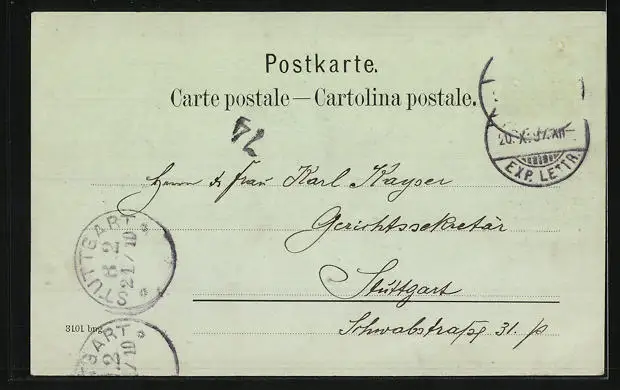 Postkarte.
Carte postale — Cartolina postale.
74
20. X. 97. XII—
EXP. LETTR.
Herrn & Frau Karl Kayser
Gerichtssekretär
Stuttgart
Schwabstraße 31. p
STUTTGART
8-2
21/10
3101 bng